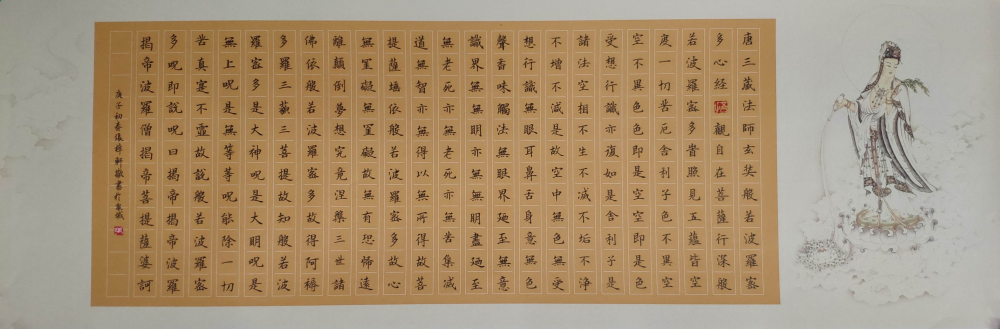 唐三藏法師玄奘般若波羅密
多心經觀自在菩薩行深般
若波羅密多旹照見五蘊皆空
度一切苦厄舍利子色不異空
空不異色色即是空空即是色
受想行識亦復如是舍利子是
諸法空相不生不滅不垢不淨
不增不減是故空中無色無受
想行識無眼耳鼻舌身意無色
聲香味觸法無眼界廼至無意
識界無無明亦無無明盡廼至
無老死亦無老死亦無苦集滅
道無智亦無得以無所得故菩
提薩埵依般若波羅密多故心
無罣礙無罣礙故無有恐怖遠
離顛倒夢想究竟涅槃三世諸
佛依般若波羅密多故得阿耨
多羅三藐三菩提故知般若波
羅密多是大神呪是大明呪是
無上呪是無等等呪能除一切
苦真實不虛故說般若波羅密
多呪即說呪曰揭帝揭帝波羅
揭帝波羅僧揭帝菩提薩婆訶
庚子初春張樟軒敬書於泉城